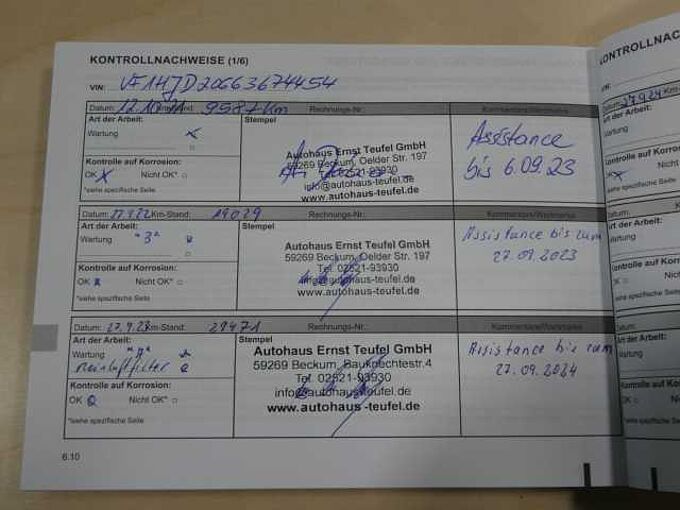 KONTROLLNACHWEISE (1/6)
VIN: VF1HJD20663674454
Datum: 12.10.21 Km-Stand: 9587 Km Rechnungs-Nr.: Kommentare/Werkstatt
Art der Arbeit:
Wartung x
Stempel
Autohaus Ernst Teufel GmbH
59269 Beckum, Oelder Str. 197
Tel. 02521-93930
info@autohaus-teufel.de
www.autohaus-teufel.de
Assistance
bis 6.09.23
Kontrolle auf Korrosion:
OK x Nicht OK* □
*siehe spezifische Seite
Datum: 27.9.22 Km-Stand: 19029 Rechnungs-Nr.:
Art der Arbeit:
Wartung "B"
Stempel
Autohaus Ernst Teufel GmbH
59269 Beckum, Oelder Str. 197
Tel. 02521-93930
info@autohaus-teufel.de
www.autohaus-teufel.de
Assistance bis zum
27.09.2023
Kontrolle auf Korrosion:
OK Nicht OK* □
*siehe spezifische Seite
Datum: 27.9.23 Km-Stand: 29471 Rechnungs-Nr.:
Art der Arbeit:
Wartung "A"
Reinluftfilter
Stempel
Autohaus Ernst Teufel GmbH
59269 Beckum, Bauknechtstr.4
Tel. 02521-93930
info@autohausteufel.de
www.autohaus-teufel.de
Assistance bis zum
27.09.2024
Kontrolle auf Korrosion:
OK Nicht OK* □
*siehe spezifische Seite
6.10
KONTROLLNACH
VIN:
27.9.24 Km-
Art der Arbeit:
Wartung
Kontrolle auf
OK
*siehe spezifische
Datum:
Art der Arbeit
Wartung
Kontrolle
OK □
*siehe
Datum
Art d